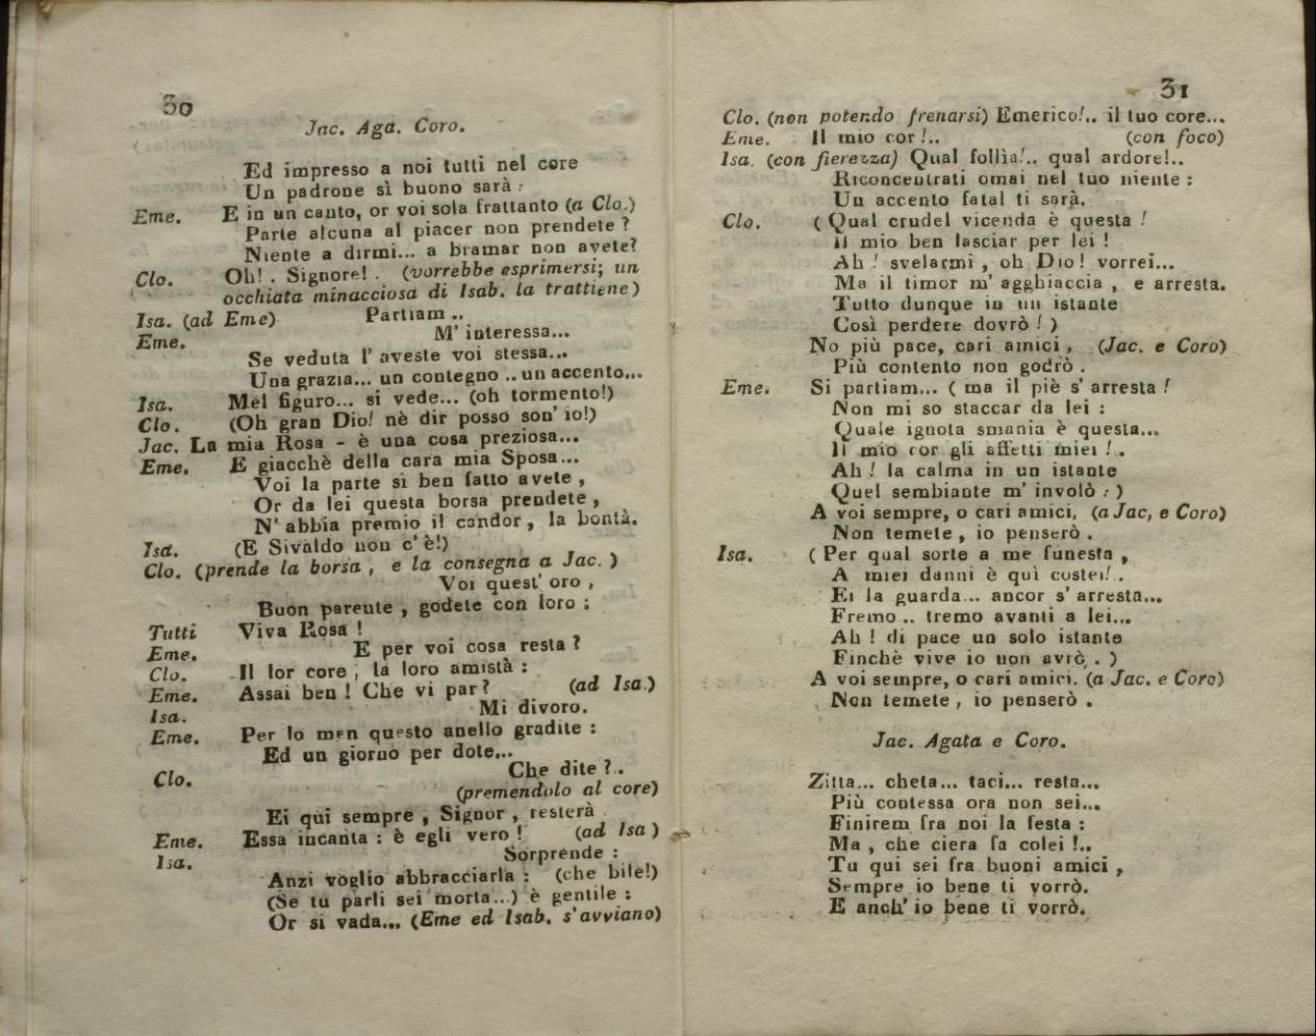 30
Jac. Aga. Coro.
Ed impresso a noi tutti nel core
Un padrone sì buono sarà :
Eme. E in un canto, or voi sola frattanto (a Clo.)
Parte alcuna al piacer non prendete ?
Niente a dirmi... a bramar non avete?
Clo. Oh! . Signore! . (vorrebbe esprimersi; un
occhiata minacciosa di Isab. la trattiene)
Isa. (ad Eme) Partiam ..
Eme. M' interessa...
Se veduta l' aveste voi stessa...
Una grazia... un contegno .. un accento...
Isa. Mel figuro... si vede... (oh tormento!)
Clo. (Oh gran Dio! nè dir posso son' io!)
Jac. La mia Rosa - è una cosa preziosa...
Eme. E giacchè della cara mia Sposa...
Voi la parte si ben fatto avete ,
Or da lei questa borsa prendete ,
N' abbia premio il candor , la bontà.
Isa. (E Sivaldo non c' è!)
Clo. (prende la borsa , e la consegna a Jac. )
Voi quest' oro ,
Buon parente , godete con loro ;
Tutti Viva Rosa !
Eme. E per voi cosa resta ?
Clo. Il lor core , la loro amistà :
Eme. Assai ben ! Che vi par ? (ad Isa.)
Isa. Mi divoro.
Eme. Per lo men questo anello gradite :
Ed un giorno per dote...
Clo. Che dite ?..
(premendolo al core)
Ei qui sempre , Signor , resterà .
Eme. Essa incanta : è egli vero ! (ad Isa )
Isa. Sorprende :
Anzi voglio abbracciarla : (che bile!)
(Se tu parli sei morta...) è gentile :
Or si vada... (Eme ed Isab. s' avviano)
31
Clo. (non potendo frenarsi) Emerico!.. il tuo core...
Eme. Il mio cor !.. (con foco)
Isa. (con fierezza) Qual follìa!.. qual ardore!..
Riconcentrati omai nel tuo niente :
Un accento fatal ti sarà.
Clo. ( Qual crudel vicenda è questa !
Il mio ben lasciar per lei !
Ah ! svelarmi , oh Dio ! vorrei...
Ma il timor m' agghiaccia , e arresta.
Tutto dunque in un istante
Così perdere dovrò ! )
No più pace, cari amici , (Jac. e Coro)
Più contento non godrò .
Eme. Si partiam... ( ma il piè s' arresta !
Non mi so staccar da lei :
Quale ignota smania è questa...
Il mio cor gli affetti miei ! .
Ah ! la calma in un istante
Quel sembiante m' involò : )
A voi sempre, o cari amici, (a Jac, e Coro)
Non temete , io penserò .
Isa. ( Per qual sorte a me funesta ,
A miei danni è quì costei! .
Ei la guarda... ancor s' arresta...
Fremo .. tremo avanti a lei...
Ah ! di pace un solo istante
Finchè vive io non avrò . )
A voi sempre, o cari amici. (a Jac. e Coro)
Non temete , io penserò .
Jac. Agata e Coro.
Zitta... cheta... taci... resta...
Più contessa ora non sei...
Finirem fra noi la festa :
Ma , che ciera fa colei !..
Tu qui sei fra buoni amici ,
Sempre io bene ti vorrò.
E anch' io bene ti vorrò.